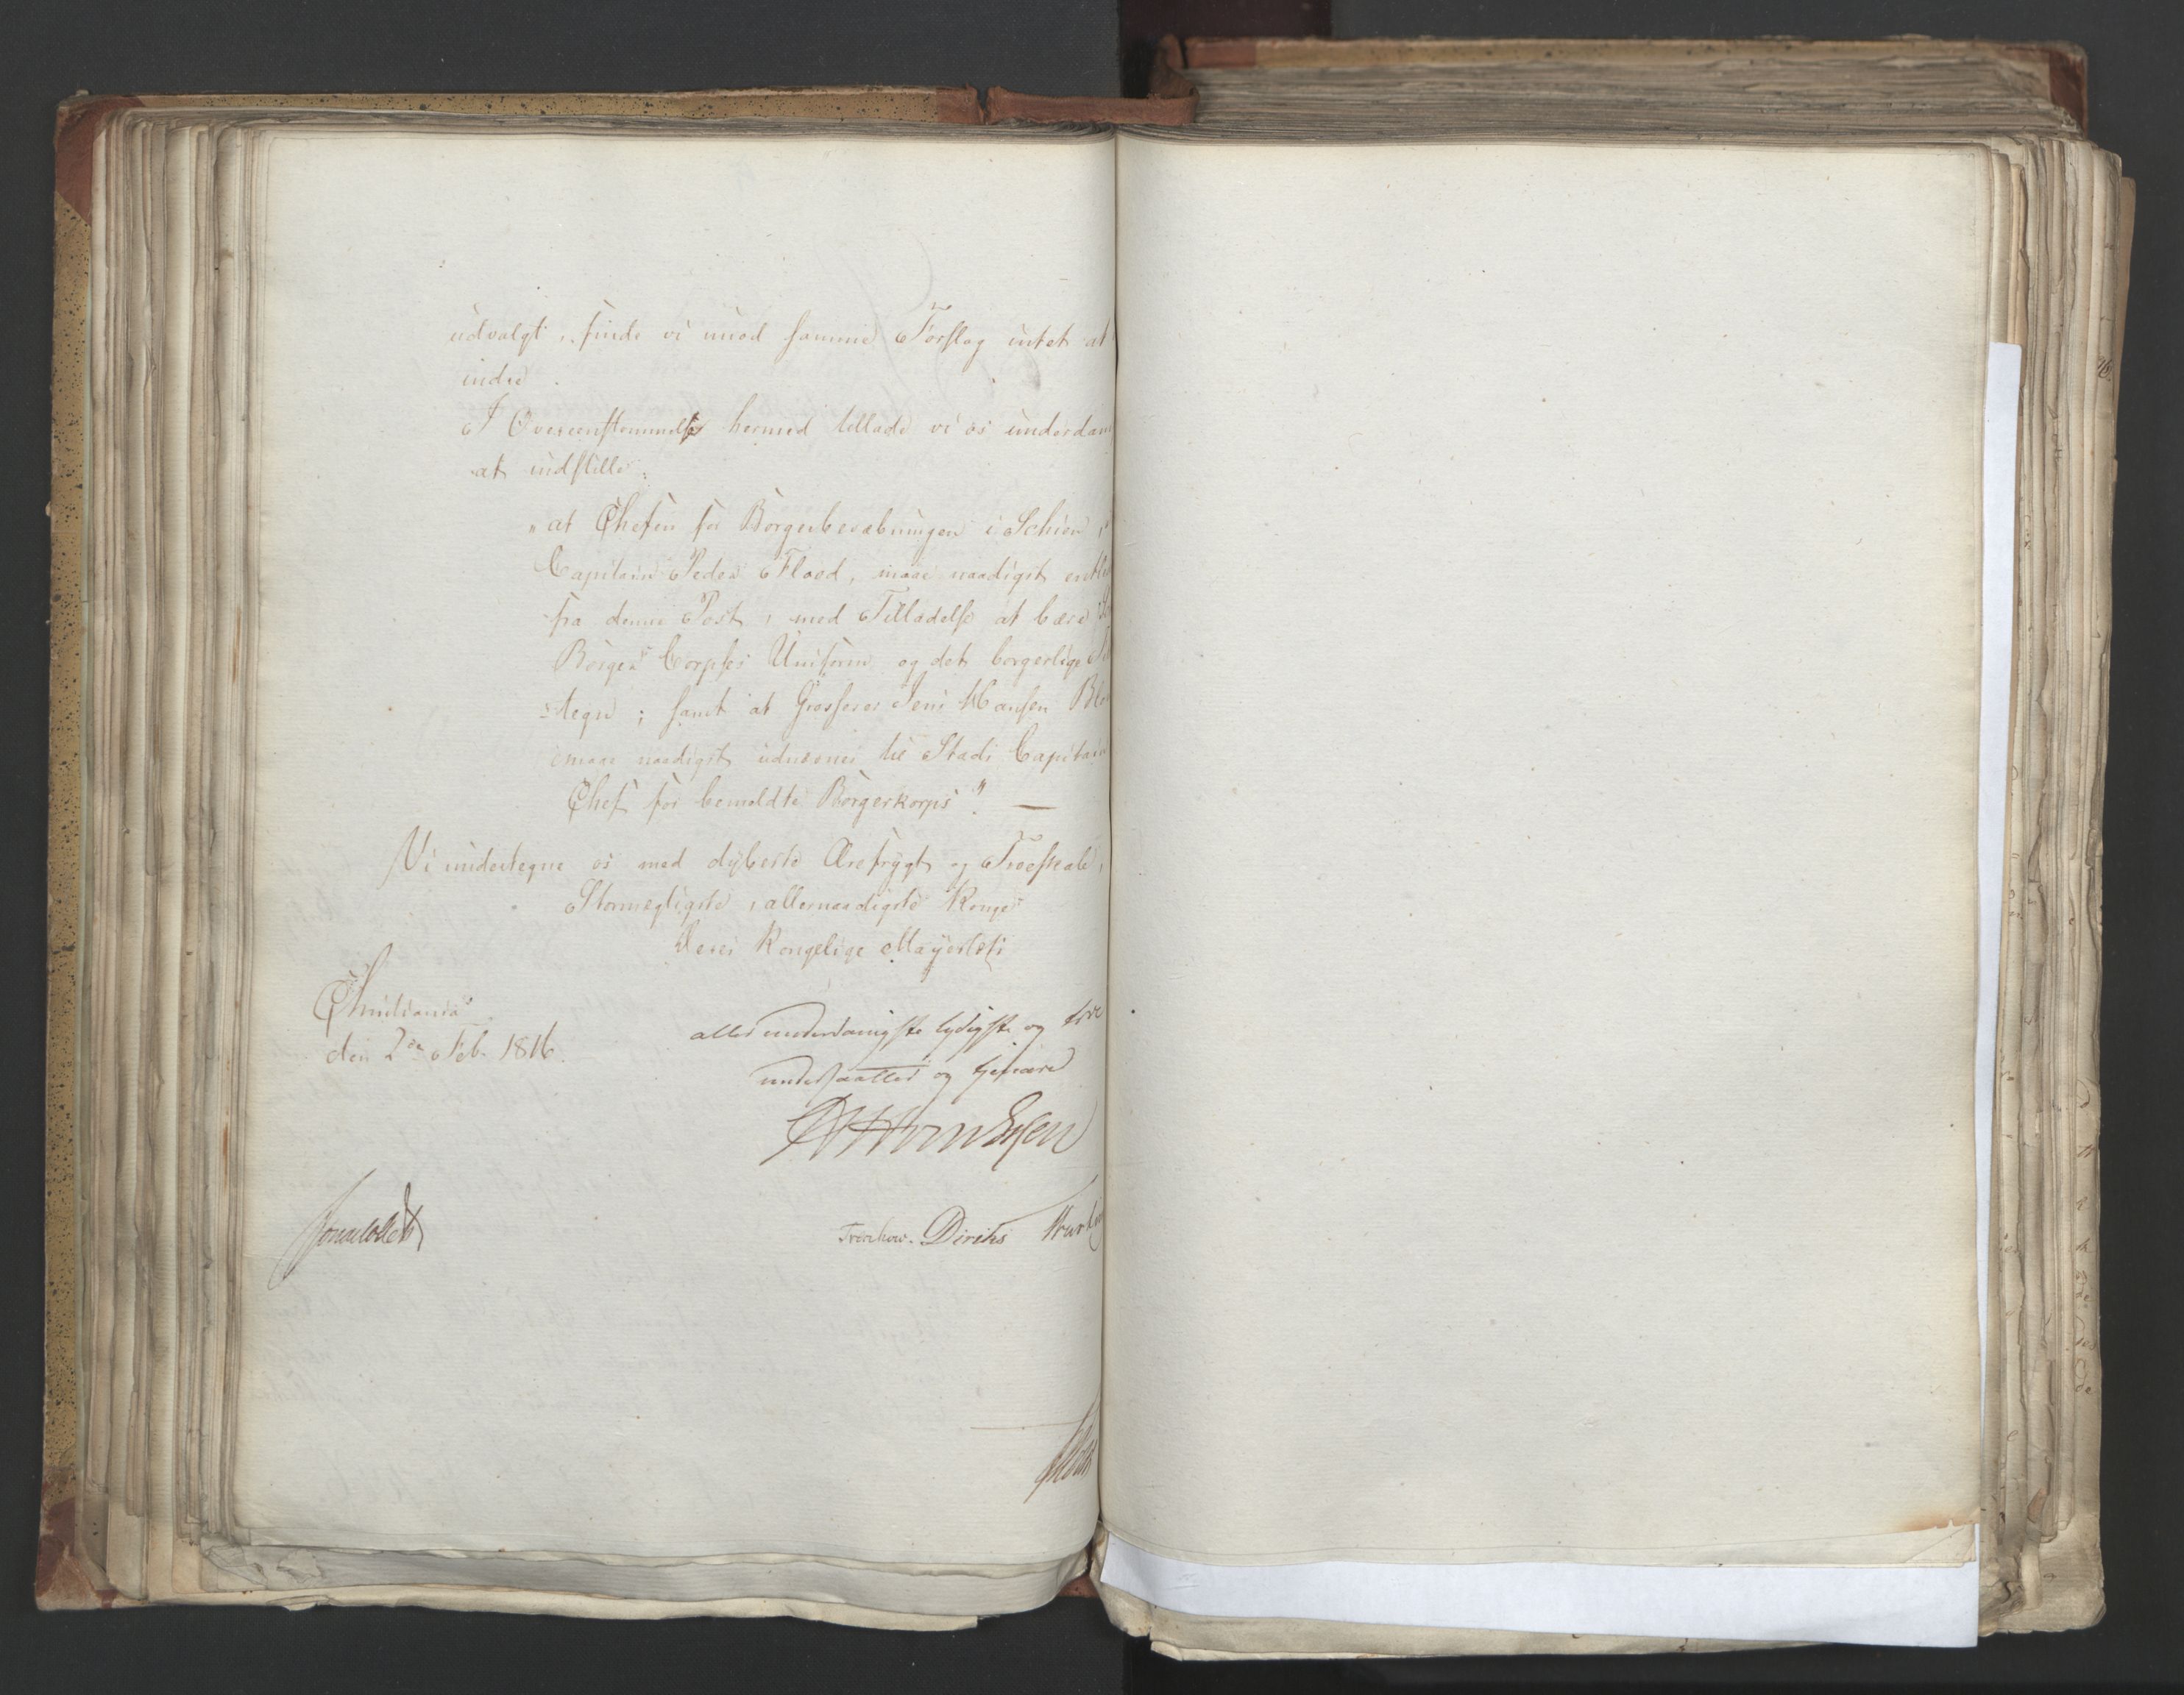 udvalgt, finde vi imod samme Forslag intet at
indre.
I Overeenstemmelse hermed tillade vi os underdan
at indstille:
"at Chefen for Borgerbevæbningen i Schien,
Capitain Peder Flood, maae naadigst entle
fra denne Post, med Tilladelse at bære
Borger Corpses Uniform og det borgerlige
-tegn; samt at Grosserer Jens Hansen Bl
maae naadigst udnævnes til Stads Capitain
Chef for bemeldte Borgerkorps". —
Vi undertegne os med dybeste Ærefrygt og Troeskab,
Stormægtigste, allernaadigste Konge
Deres Kongelige Majestæts
Christiania
den 2den Feb. 1816.
allerunderdanigste lydigste og troe
undersaatter og tjenere
Treschow. Diriks